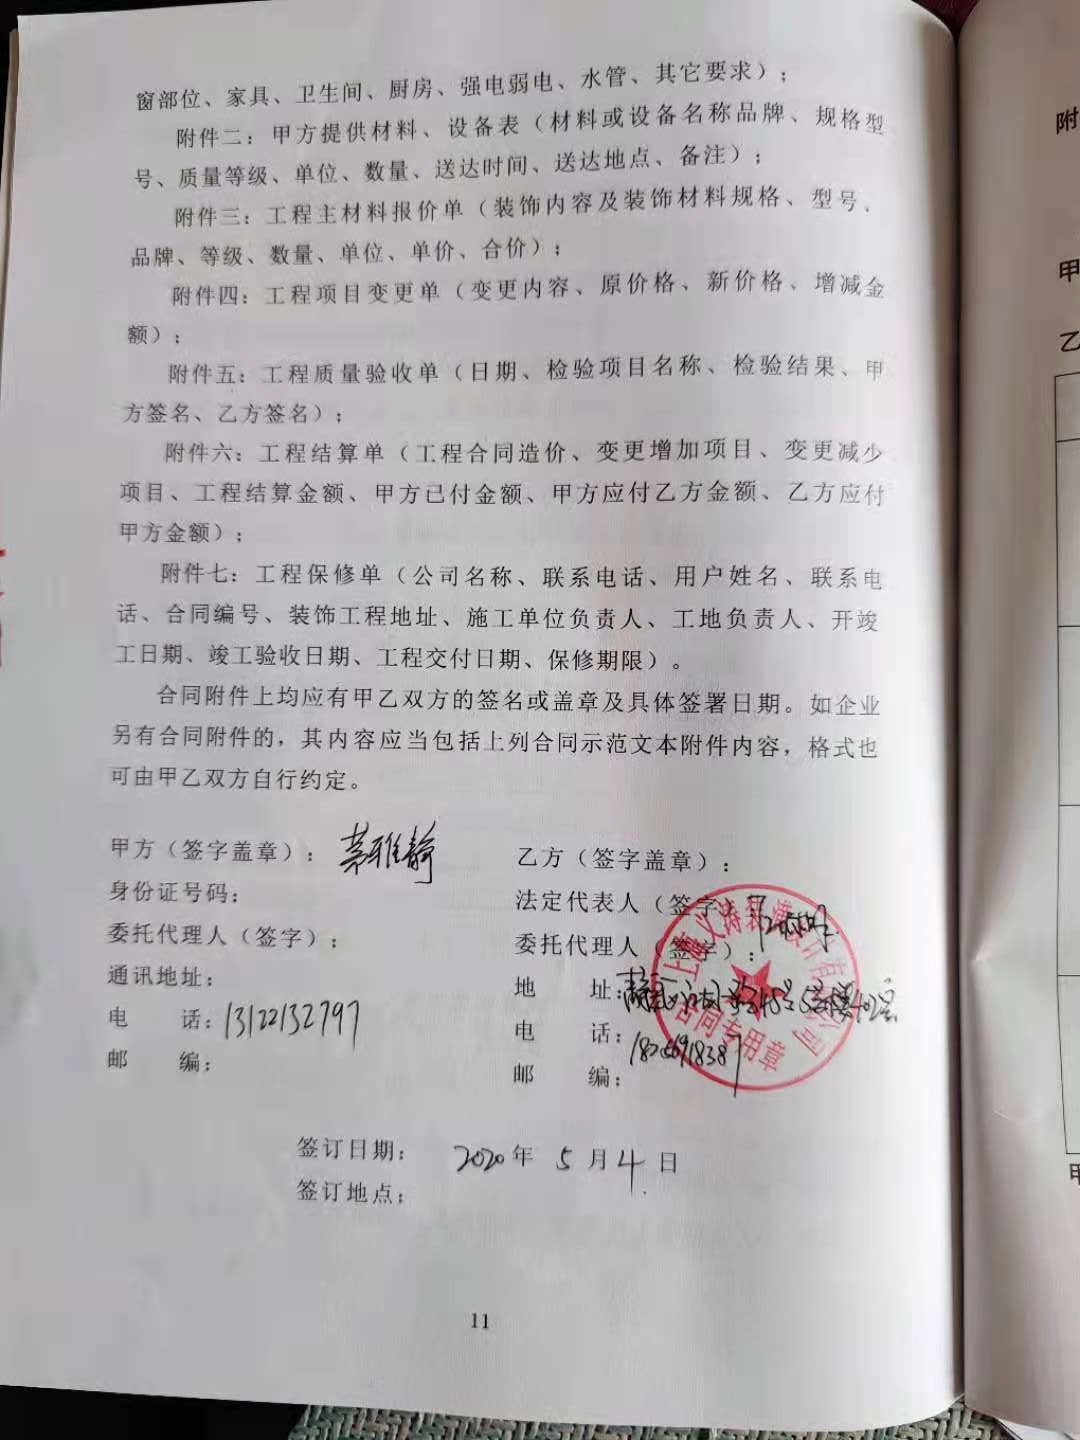 窗部位、家具、卫生间、厨房、强电弱电、水管、其它要求）；
附件二：甲方提供材料、设备表（材料或设备名称品牌、规格型
号、质量等级、单位、数量、送达时间、送达地点、备注）；
附件三：工程主材料报价单（装饰内容及装饰材料规格、型号、
品牌、等级、数量、单位、单价、合价）；
附件四：工程项目变更单（变更内容、原价格、新价格、增减金
额）；
附件五：工程质量验收单（日期、检验项目名称、检验结果、甲
方签名、乙方签名）；
附件六：工程结算单（工程合同造价、变更增加项目、变更减少
项目、工程结算金额、甲方已付金额、甲方应付乙方金额、乙方应付
甲方金额）；
附件七：工程保修单（公司名称、联系电话、用户姓名、联系电
话、合同编号、装饰工程地址、施工单位负责人、工地负责人、开竣
工日期、竣工验收日期、工程交付日期、保修期限）。
合同附件上均应有甲乙双方的签名或盖章及具体签署日期。如企业
另有合同附件的，其内容应当包括上列合同示范文本附件内容，格式也
可由甲乙双方自行约定。
甲方（签字盖章）：茅雅静
身份证号码：
委托代理人（签字）：
通讯地址：
电 话：13122132797
邮 编：
乙方（签字盖章）：
法定代表人（签字）：
委托代理人（签字）：
地 址：
电 话：
邮 编：
合同专用章
签订日期： 2020年 5月4日
签订地点：
11
附
甲
乙
甲